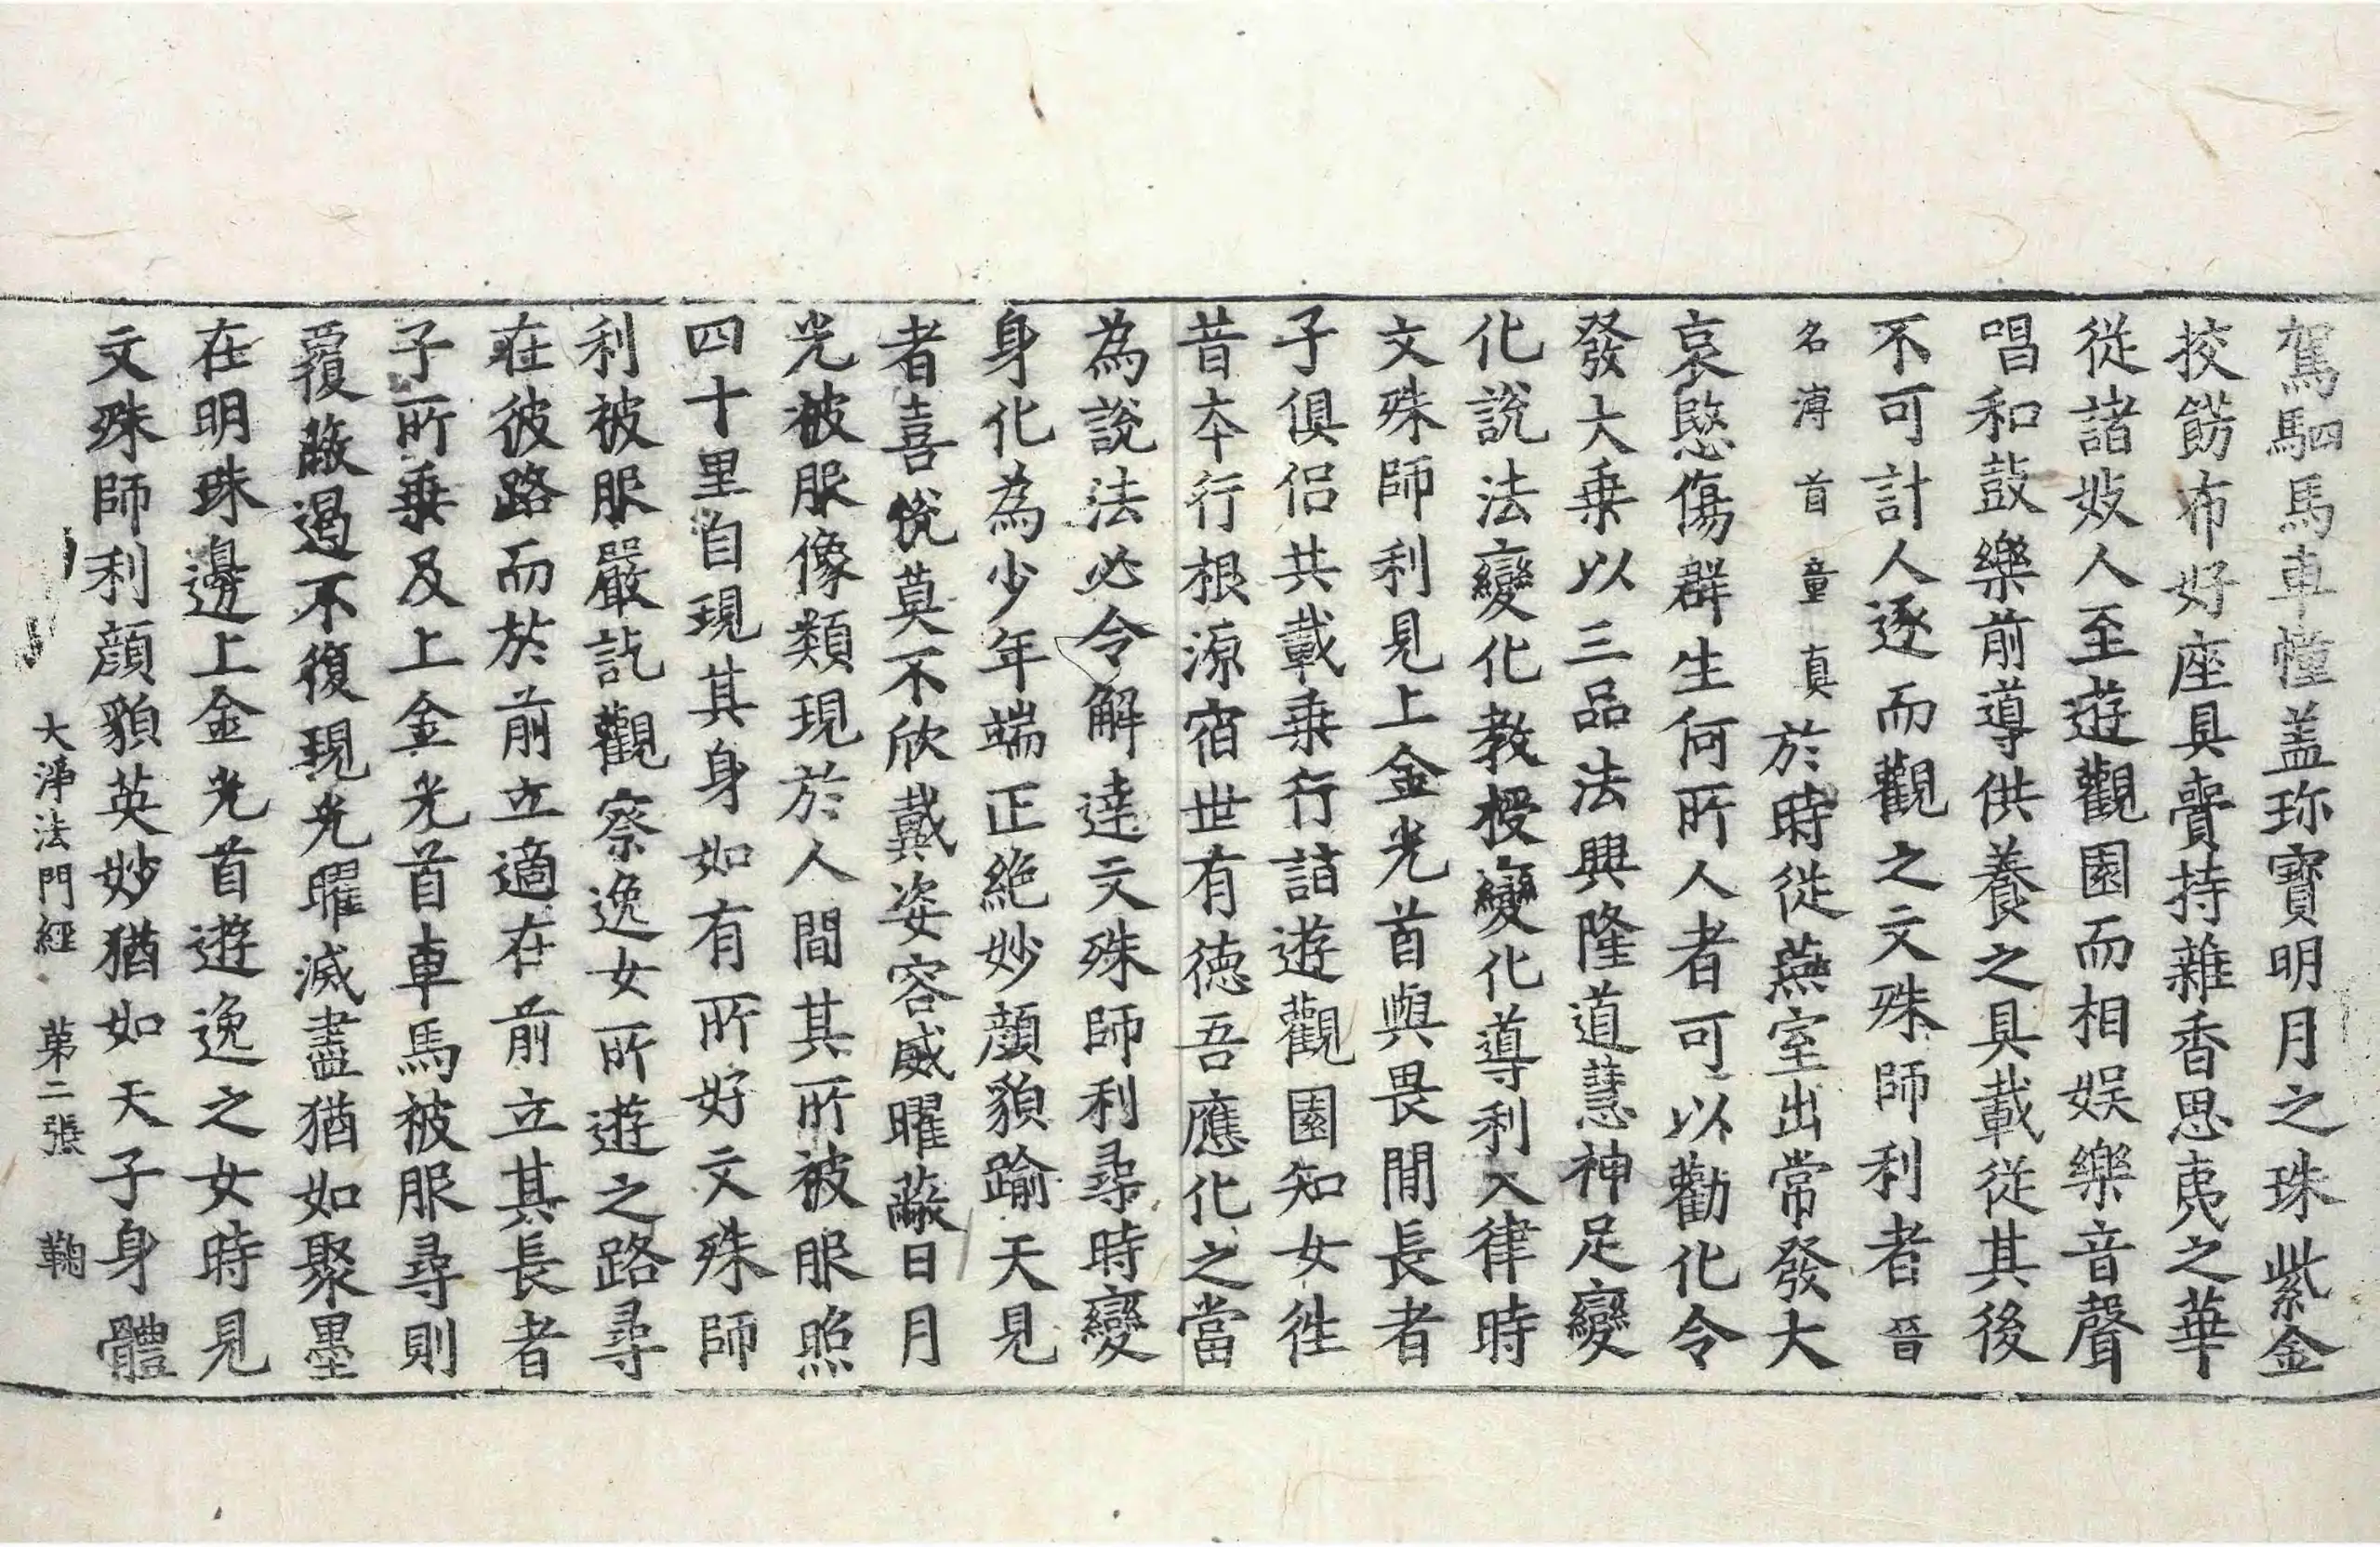 駕駟馬車幢盖珎寶明月之珠紫金
挍餝布好座具賷持雜香思夷之華
從諸妓人至遊觀園而相娱樂音聲
唱和鼓樂前導供養之具載從其後
不可計人逐而觀之文殊師利者晉
名溥首童真於時從燕室出常發大
哀愍傷群生何所人者可以勸化令
發大乗以三品法興隆道慧神足變
化說法變化教授變化導利入律時
文殊師利見上金光首與畏間長者
子俱侣共載乗行詣遊觀園知女徃
昔本行根源宿世有德吾應化之當
為說法必令解達文殊師利尋時變
身化為少年端正絶妙顔貌踰天見
者喜恱莫不欣戴姿容威曜蔽日月
光被服像類現於人間其所被服照
四十里自現其身如有所好文殊師
利被服嚴訖觀察逸女所遊之路尋
在彼路而於前立適在前立其長者
子所乗及上金光首車馬被服尋則
覆蔽遏不復現光曜滅盡猶如聚墨
在明珠邊上金光首遊逸之女時見
文殊師利顔貌英妙猶如天子身體
大淨法門經 第二張 鞠